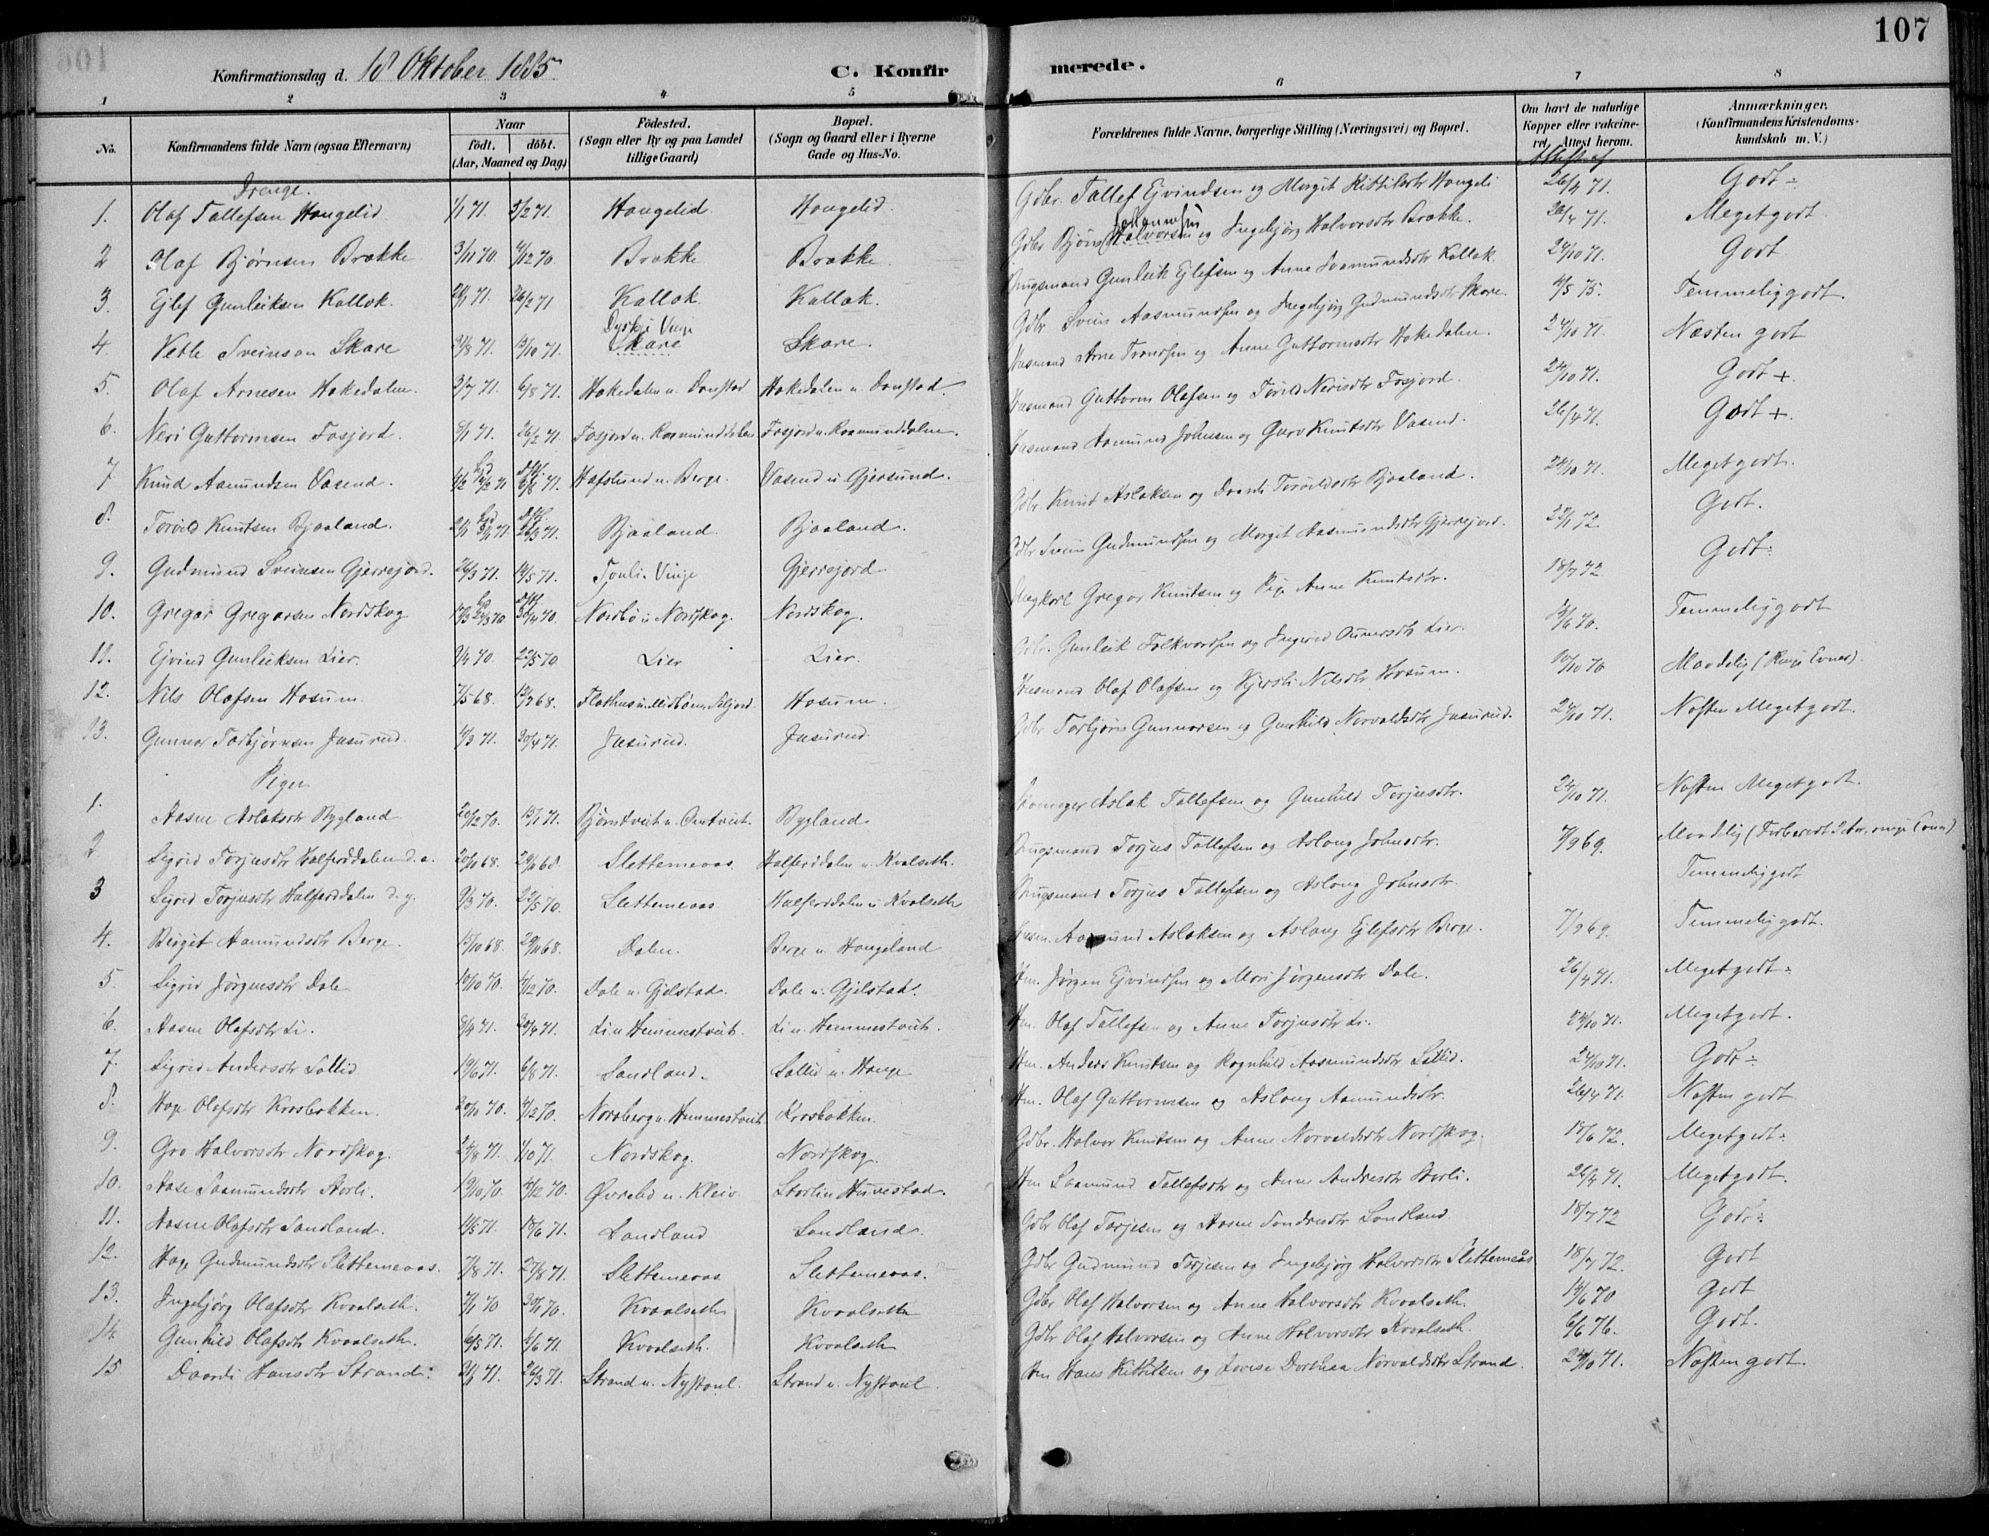 107
Konfirmationsdag d. 18 Oktober 1885. C. Konfirmerede.
1 2 3 4 5 6 7 8
No. Konfirmandens fulde Navn (ogsaa Efternavn) Naar født. døbt. (Aar, Maaned og Dag) Fødested. (Sogn eller By og paa Landet tillige Gaard) Bopæl. (Sogn og Gaard eller i Byerne Gade og Hus-No. Forældrenes fulde Navne, borgerlige Stilling (Næringsvei) og Bopæl. Om havt de naturlige Kopper eller vaccineret, Attest herom. Anmærkninger. (Konfirmandens Kristendomskundskab m. V.)
Drenge.
1. Olaf Tallefsen Haugelid 1/1 71. 5/2 71. Haugelid. Haugelid. Gdbr. Tallef Ejvindsen og Margit Kittilsdtr Haugeli 26/4 71. Godt
2 Olaf Bjørnsen Brække 3/11 70. 4/12 70. Brække Brække. Gdbr Bjørn Halvorsen og Ingebjørg Halvorsdtr Brække. 26/4 71. Megetgodt
3. Ejlef Gunleiksen Kallak. 26/2 71 Kallak. Kallak. Gunleik Ejlefsen og Anne Saamundsdtr Kallak. 24/10 71. Godt
4. Vetle Sveinson Skare 71. 71. Vinje Skare Skare. Gdbr Svein Aasmundsen og Ingebjørg Gudmundsdtr Skare. 4/5 75. Temmeliggodt.
5. Olaf Arnesen Hakedalen. 3/7 71. 6/8 71. Hakedalen u. Danstad Hakedalen u. Danstad. Husmand Arne Tronsen og Anne Guttormsdtr Hakedalen. 24/10 71. Næsten godt
6. Neri Guttormsen Fosjord. 8/1 71. 26/2 71. Fosjord u. Raamunddalen Fosjord u. Raamunddalen. Husmand Guttorm Olafsen og Torild Nerisdtr Fosjord. 24/10 71. Godt +
7 Knud Aamundsen Vasend. 71 71. Hafslund u. Berge. Vasend u. Gjersund. Husmand Aamund Johnsen og Guro Knutsdtr Vasend. 26/4 71. Godt +
8. Torvild Knutsen Bjaaland. 71 71. Bjaaland. Bjaaland. Gdbr. Knut Aslaksen og Daardi Torvildsdtr Bjaaland. 24/10 71. Megetgodt.
9. Gudmund Sveinsen Gjerrejord. 24/3 71. 14/5 71. Vinje Gjerrejord Gdbr Svein Gudmundsen og Margit Aasmundsdtr Gjerrejord. 22/1 72. Godt.
10. Gregar Gregarsen Nordskog 70 70. Nordbø u. Nordskog. Nordskog. Gregar Knutsen og Pige Anne Knutsdtr. 18/7 72 Godt
11. Ejvind Gunleiksen Lier. 9/4 70. 22/5 70. Lier Lier. Gdbr. Gunleik Folkvardsen og Ingerid Lier. 70. Temmeliggodt
12. Nils Olafsen Hosum. 7/5 68. 68. Flathus u. Midbøen, Seljord. Hosum. Husmand Olaf Olafsen og Kjersti Nilsdtr Hosum. 70 Maadelig (Ringe Evner).
13. Gunnar Torbjørnsen Jusurud. 4/3 71. 30/4 71. Jusurud. Jusurud. Gdbr Torbjørn Gunnarsen og Gunhild Norvaldsdtr Jusurud. 24/10 71. Næsten Megetgodt.
Piger
1. Aasne Aslaksdtr Bygland 20/12 70. 15/1 71. Bjørntveit u. Omtveit. Bygland. Aslak Tallefsen og Gunhild Torjusdtr. 24/10 71. Næsten Megetgodt.
2 Sigrid Torjusdtr Halferddalen d. æ. 20/10 68. 29/11 68. Slettemeaas Halferddalen u. Kvalseth. Torjus Tallefsen og Aslaug Johnsdtr. 7/9 69. Maadelig (Forberedt 2 Aar, ringe Evner)
3 Sigrid Torjusdtr Halferddalen d. y. 9/3 70. 22/5 70. Slettemeaas Halferddalen u Kvalseth Torjus Tallefsen og Aslaug Johnsdtr. Temmeliggodt
4. Birgit Aamundsdtr Berge. 15/10 68. 29/11 68. Dalen. Berge u. Haugeland Husm. Aamund Aslaksen og Aslaug Ejlefsdtr Berge. 7/9 69. Temmeliggodt.
5. Sigrid Jørgensdtr Dale 10/10 70. 4/12 70. Dale u. Gjelstad. Dale u. Gjelstad. Hm. Jørgen Ejvindsen og Mari Jørgensdtr Dale. 26/4 71. Megetgodt
6. Aasne Olafsdtr Li. 8/4 71. 30/4 71. Li u Hemmestveit. Li u. Hemmestveit. Hm. Olaf Tallefsen og Anne Torjusdtr Li. 24/10 71. Megetgodt.
7. Sigrid Andersdtr Sollid 19/6 71. 6/8 71. Sandland. Sollid u. Hauge Hm. Anders Knutsen og Ragnhild Aasmundsdtr Sollid. 24/10 71. Godt
8. Hæge Olafsdtr Krosbakken. 20/10 70. 4/12 70. Norsberg u Hemmestveit Krosbakken. Hm. Olaf Guttormsen og Aslaug Aamundsdtr. 26/4 71. Næsten godt
9. Gro Halvorsdtr Nordskog. 24/8 71. 1/10 71. Nordskog. Nordskog. Gdbr. Halvor Knutsen og Anne Norvaldsdtr Nordskog. 18/6 72. Megetgodt
10. Aase Saamundsdtr Storli. 19/10 70. 4/12 70. Øvrebø u. Kleiv. Storli u Huvestad. Hm Saamund Tallefsdtr og Anne Andresdtr Storli. 26/4 71. Megetgodt.
11. Aasne Olafsdtr Sandland. 4/5 71. 18/6 71. Sandland Sandland. Gdbr Olaf Torjesen og Aasne Tondresdtr Sandland 18/7 72 Godt
12. Hæge Gudmundsdtr Slettemeaas. 7/8 71. 27/8 71. Slettemeaas Slettemeaas. Gdbr Gudmund Torjesen og Ingebjørg Halvorsdtr Slettemeås 18/7 72. Godt
13. Ingebjørg Olafsdtr Kvaalseth. 7/1 70 30/1 70. Kvaalseth Kvaalseth Gdbr Olaf Halvorsen og Anne Halvorsdtr Kvaalseth. 14/6 70 Godt
14. Gunhild Olafsdtr Kvaalseth. 6/5 71. 4/6 71. Kvaalseth. Kvaalseth Gdbr Olaf Halvorsen og Anne Halvorsdtr Kvaalseth. 6/6 76. Godt.
15 Daardi Hansdtr Strand. 71. 26/3 71. Strand u. Nystaul. Strand u. Nystaul. Hm Hans Kittilsen og Dorthea Norvaldsdtr Strand. 24/10 71. Næsten godt.